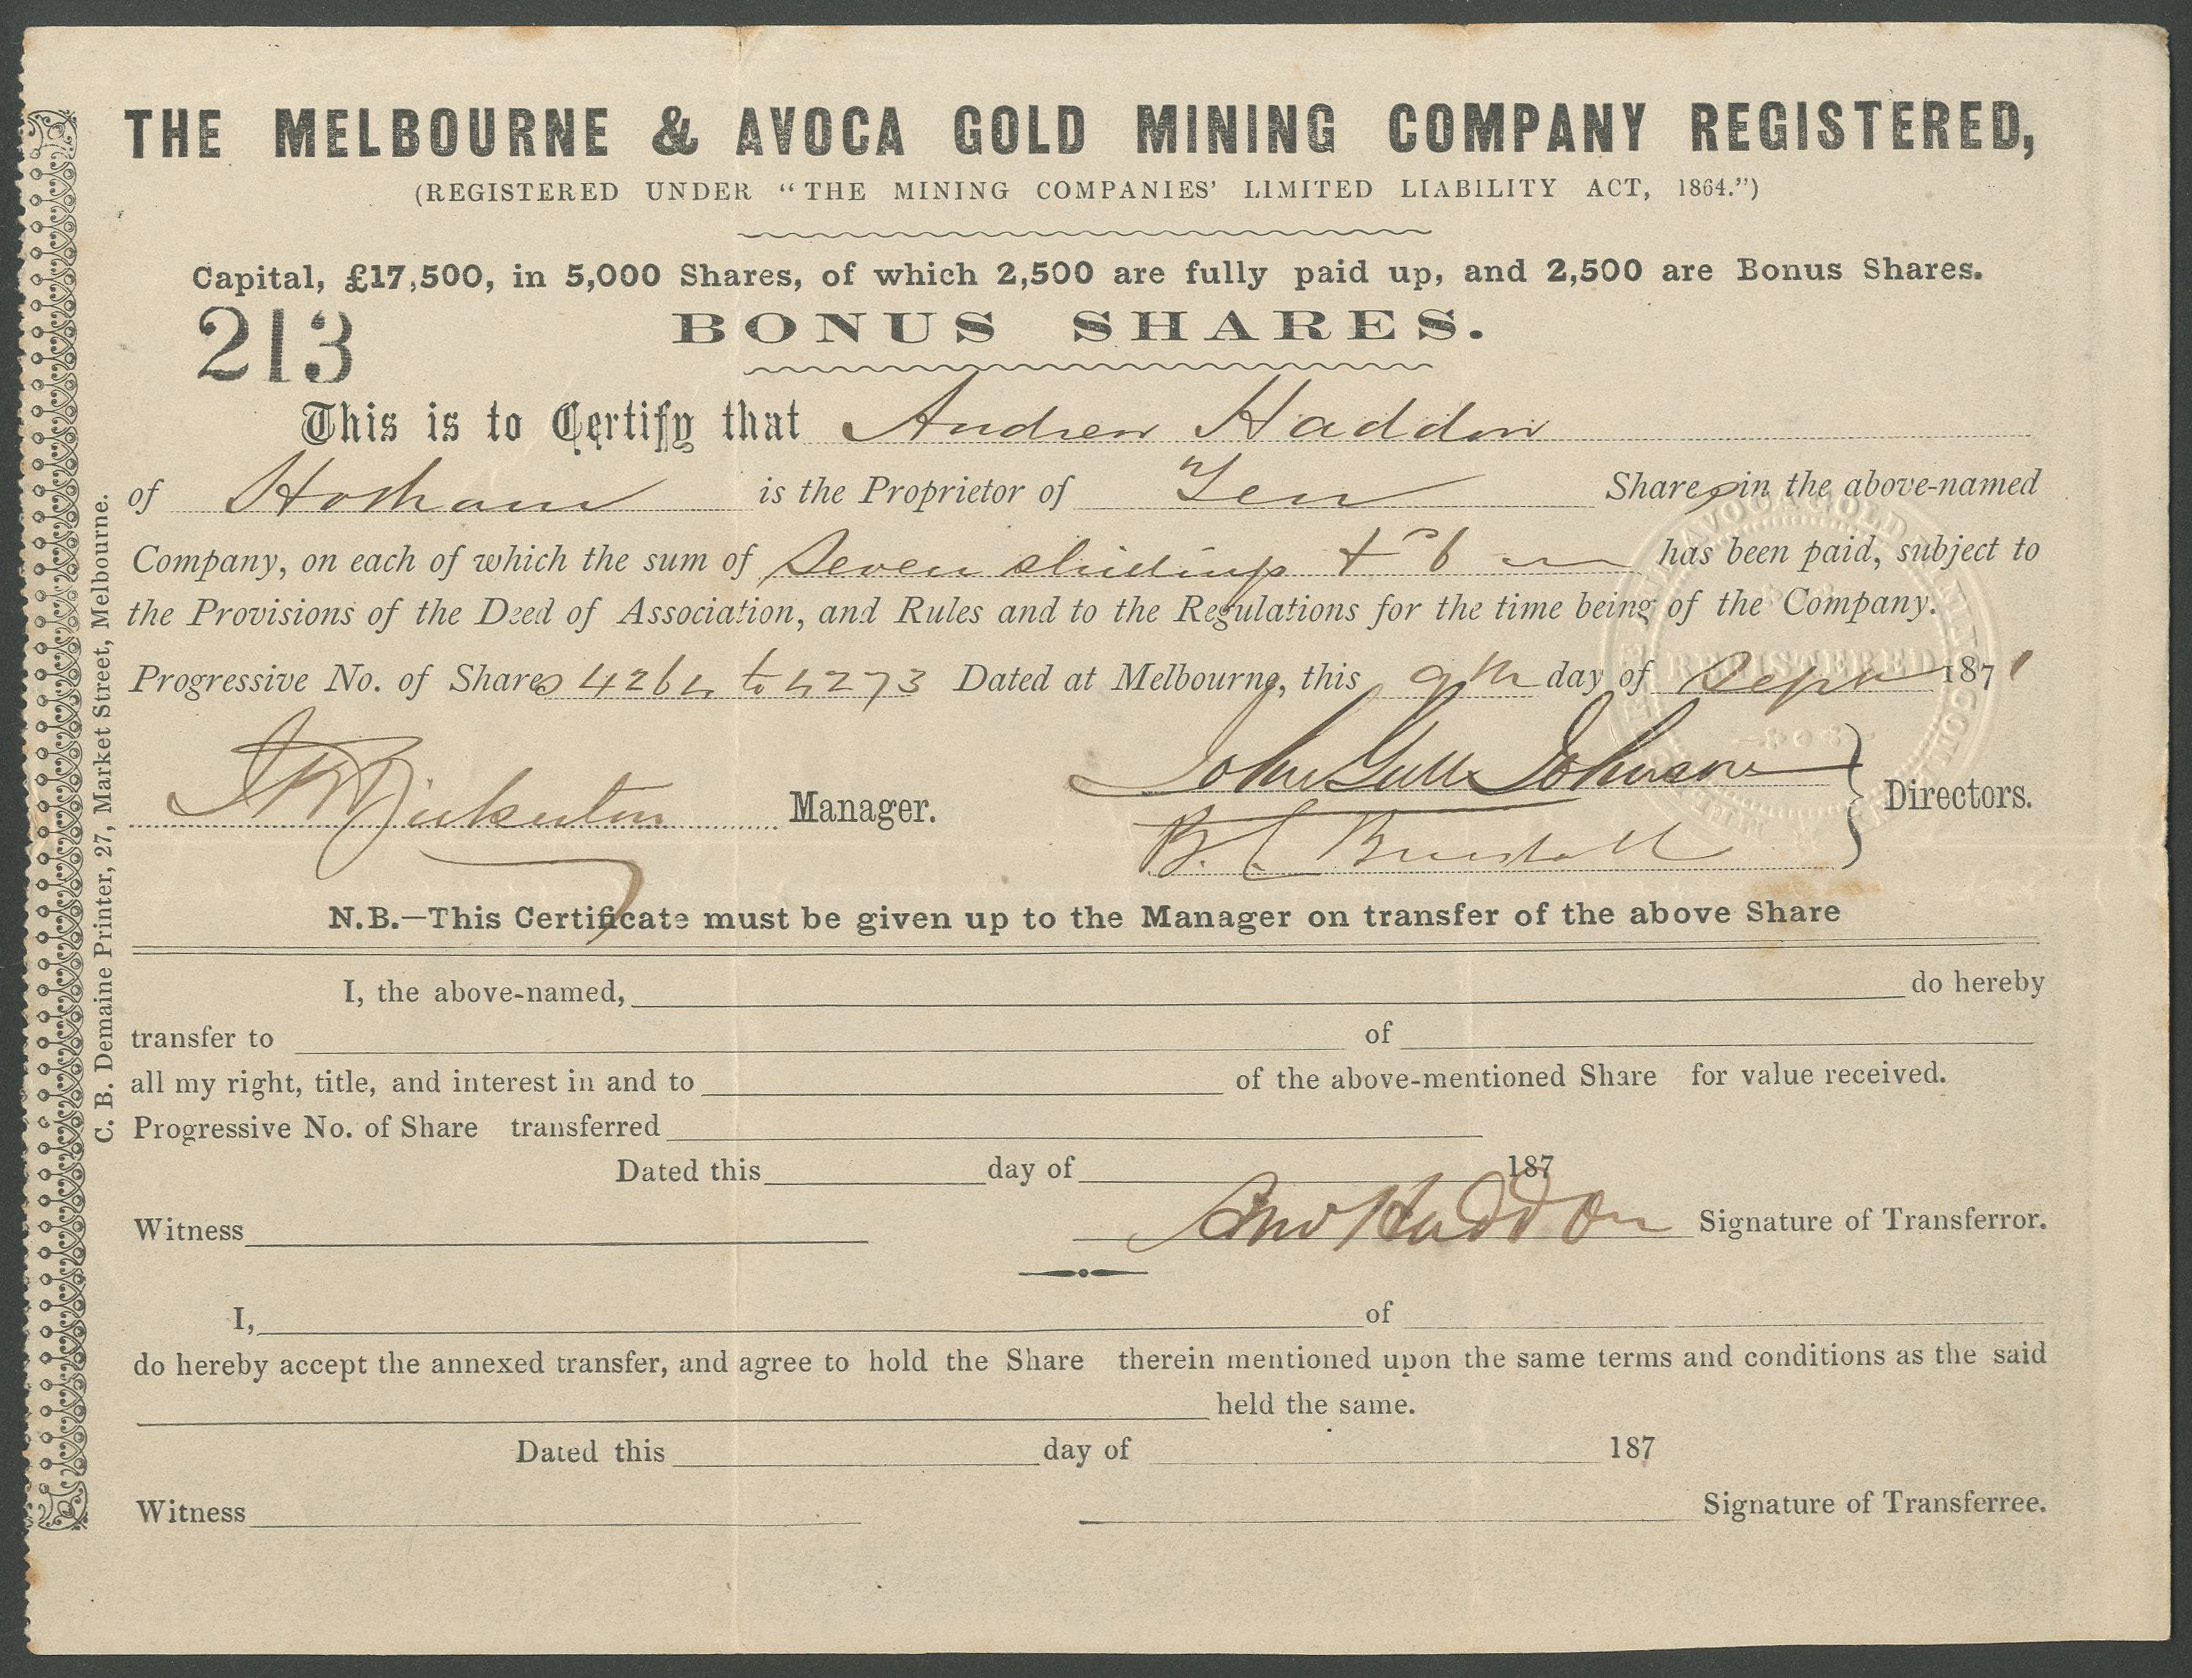 THE MELBOURNE & AVOCA GOLD MINING COMPANY REGISTERED,
(REGISTERED UNDER “THE MINING COMPANIES’ LIMITED LIABILITY ACT, 1864.”)
Capital, £17,500, in 5,000 Shares, of which 2,500 are fully paid up, and 2,500 are Bonus Shares.
213
BONUS SHARES.
This is to Certify that Andrew Haddon
of Hotham is the Proprietor of Ten Shares in the above-named
Company, on each of which the sum of Seven shillings & 6 has been paid, subject to
the Provisions of the Deed of Association, and Rules and to the Regulations for the time being of the Company.
Progressive No. of Shares 4264 to 4273 Dated at Melbourne, this 9th day of Sepr 1871
Manager.
John Johnson
Directors.
N.B.—This Certificate must be given up to the Manager on transfer of the above Share
I, the above-named, do hereby
transfer to of
all my right, title, and interest in and to of the above-mentioned Share for value received.
Progressive No. of Share transferred
Dated this day of 187
Witness And Haddon Signature of Transferror.
I, of
do hereby accept the annexed transfer, and agree to hold the Share therein mentioned upon the same terms and conditions as the said
held the same.
Dated this day of 187
Witness Signature of Transferree.
C. B. Demaine Printer, 27, Market Street, Melbourne.
REGISTERED